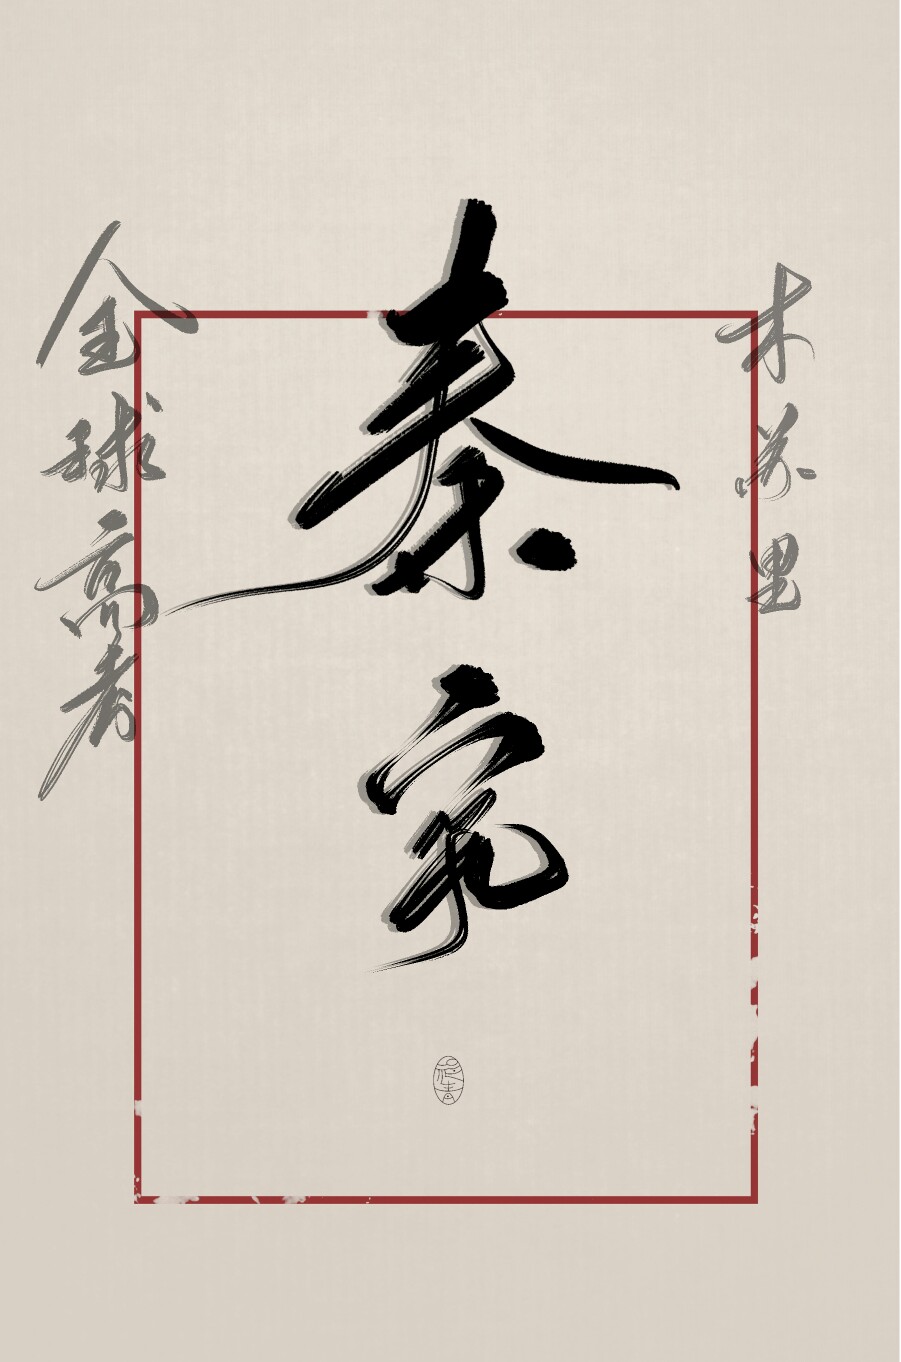 木苏里
秦究
全球高考